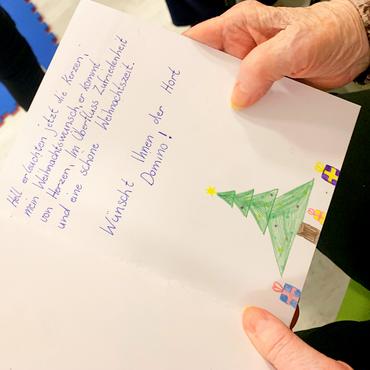 Hell erleuchten jetzt die Kerzen,
mein Weihnachtswunsch, er kommt
von Herzen: Im Überfluss Zufriedenheit
und eine schöne Weihnachtszeit.
Wünscht Ihnen der Hort
Domino!